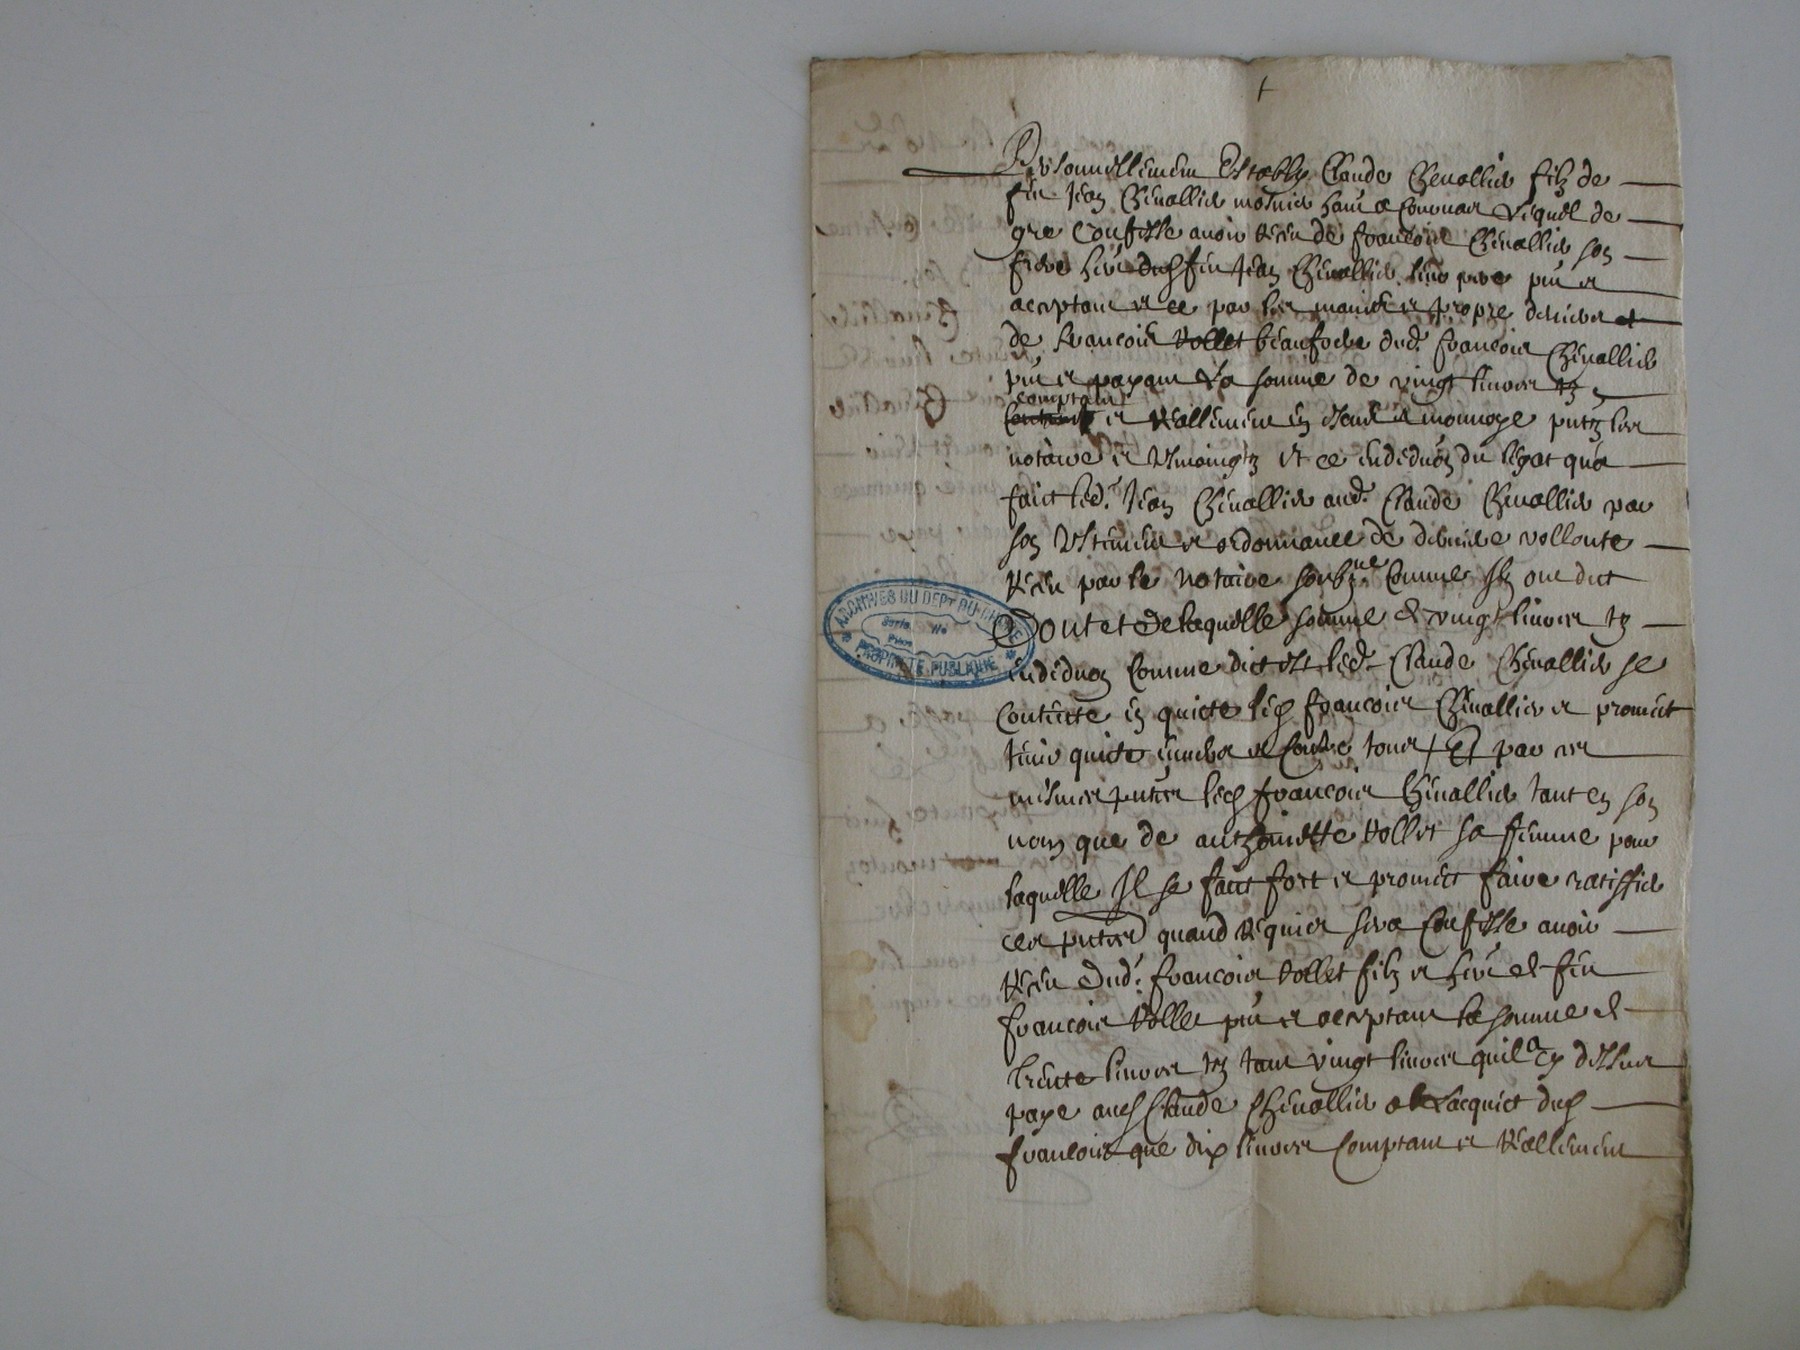 Personnellement Estably Claude Chevallier filz de
feu Jean Chevallier lequel de
gre Confesse avoir receu de francois Chevallier son
frere heri dud feu Jean Chevallier leur pere pnt et
acceptant et ce par les mains et propre deniers et
de francois Vollet beaufrere dud. francois Chevallier
pnt et payant La somme de vingt livres tz
comptant
et reallement en et monnoye pntz les
notaire et tesmoingtz et ce en deduon du legat qua
faict led. Jean Chevallier aud. Claude Chevallier par
son testement et ordonnance de derniere vollonte
receu par le notaire soubzne Comme Ilz ont dict
Dont et De laquelle somme de vingt livres tz
en deduon Comme dict est led. Claude Chevallier se
Contente en quicte led francois Chevallier et promect
tenir quicte envers et Contre tous / Et par ces
mesmes pntes led francois Chevallier tant en son
nom que de anthoinette Vollet sa femme pour
laquelle Il se faict fort et promect faire ratiffier
ces pntes quand requis sera Confesse avoir
receu dud. francois Vollet filz et heri de feu
francois Vollet pnt et acceptant la somme de
trente livres tz tant vingt livres quil a cy dessus
paye aud Claude Chevallier a Lacquict dud
francois que dix livres Comptant et reallement
ARCHIVES DU DEPT DU RHONE
Serie No
PROPRIETE PUBLIQUE